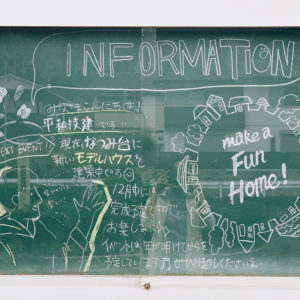 INFORMATION
みなさまこんにちは!
平和技建です!!
NEXT EVENT!!
現在、なつみ台に
新しいモデルハウスを
建築中です
12月中には
完成予定ですので
お楽しみに
イベントは年が明けてからを
予定しています
make a
Fun
Home!